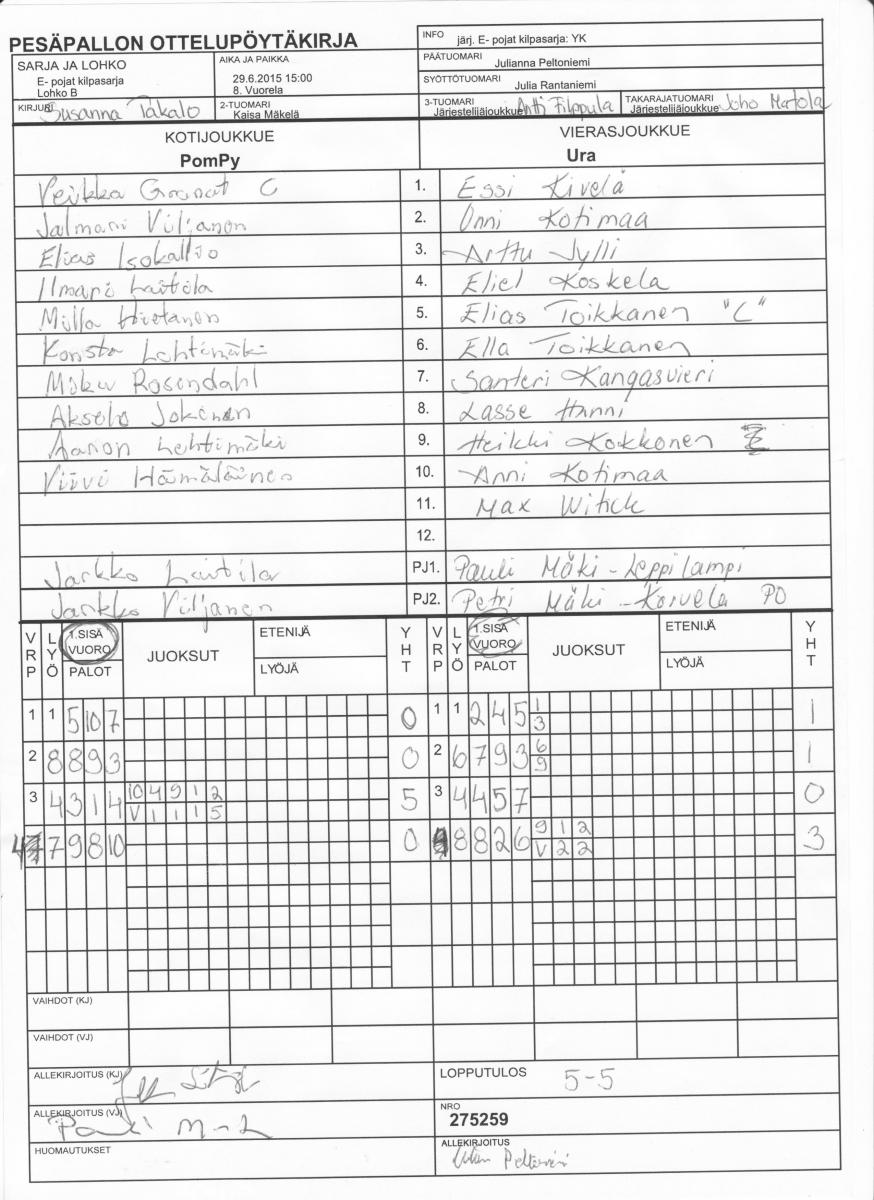 PESÄPALLON OTTELUPÖYTÄKIRJA
INFO järj. E- pojat kilpasarja: YK
PÄÄTUOMARI
Julianna Peltoniemi
SYÖTTÖTUOMARI
Julia Rantaniemi
SARJA JA LOHKO
E- pojat kilpasarja
Lohko B
AIKA JA PAIKKA
29.6.2015 15:00
8. Vuorela
KIRJURI Susanna Takalo
2-TUOMARI
Kaisa Mäkelä
3-TUOMARI
Järjestelijäjoukkue Antti Filppula
TAKARAJATUOMARI
Järjestelijäjoukkue Joho Matola
KOTIJOUKKUE
PomPy
VIERASJOUKKUE
Ura
Veikka Granat C 1. Essi Kivelä
Jalmari Viljanen 2. Onni Kotimaa
Elias Isokallio 3. Arttu Jylli
Ilmari Laitila 4. Eliel Koskela
Milla Hietanen 5. Elias Toikkanen "C"
Konsta Lehtimäki 6. Ella Toikkanen
Miku Rosendahl 7. Santeri Kangasvieri
Akseli Jokinen 8. Lasse Hanni
Aaron Lehtimäki 9. Heikki Kokkonen
Viivi Hämäläinen 10. Anni Kotimaa
11. Max Witick
12.
Jarkko Laitila PJ1. Pauli Mäki-Leppilampi
Jarkko Viljanen PJ2. Petri Mäki-Korvela PO
VRP LYÖ 1.SISÄ VUORO PALOT JUOKSUT ETENIJÄ LYÖJÄ YHT VRP LYÖ 1.SISÄ VUORO PALOT JUOKSUT ETENIJÄ LYÖJÄ YHT
1 1 5 10 7 0 1 1 2 4 5 1 1
3
2 8 8 9 3 0 2 6 7 9 3 6 1
9
3 4 3 1 4 10 4 9 1 2 5 3 4 4 5 7 0
V 1 1 1 5
4 7 9 8 10 0 8 8 2 6 9 1 2 3
V 2 2
VAIHDOT (KJ)
VAIHDOT (VJ)
ALLEKIRJOITUS (KJ)
LOPPUTULOS 5-5
ALLEKIRJOITUS (VJ) Pauli M-L
NRO
275259
HUOMAUTUKSET
ALLEKIRJOITUS